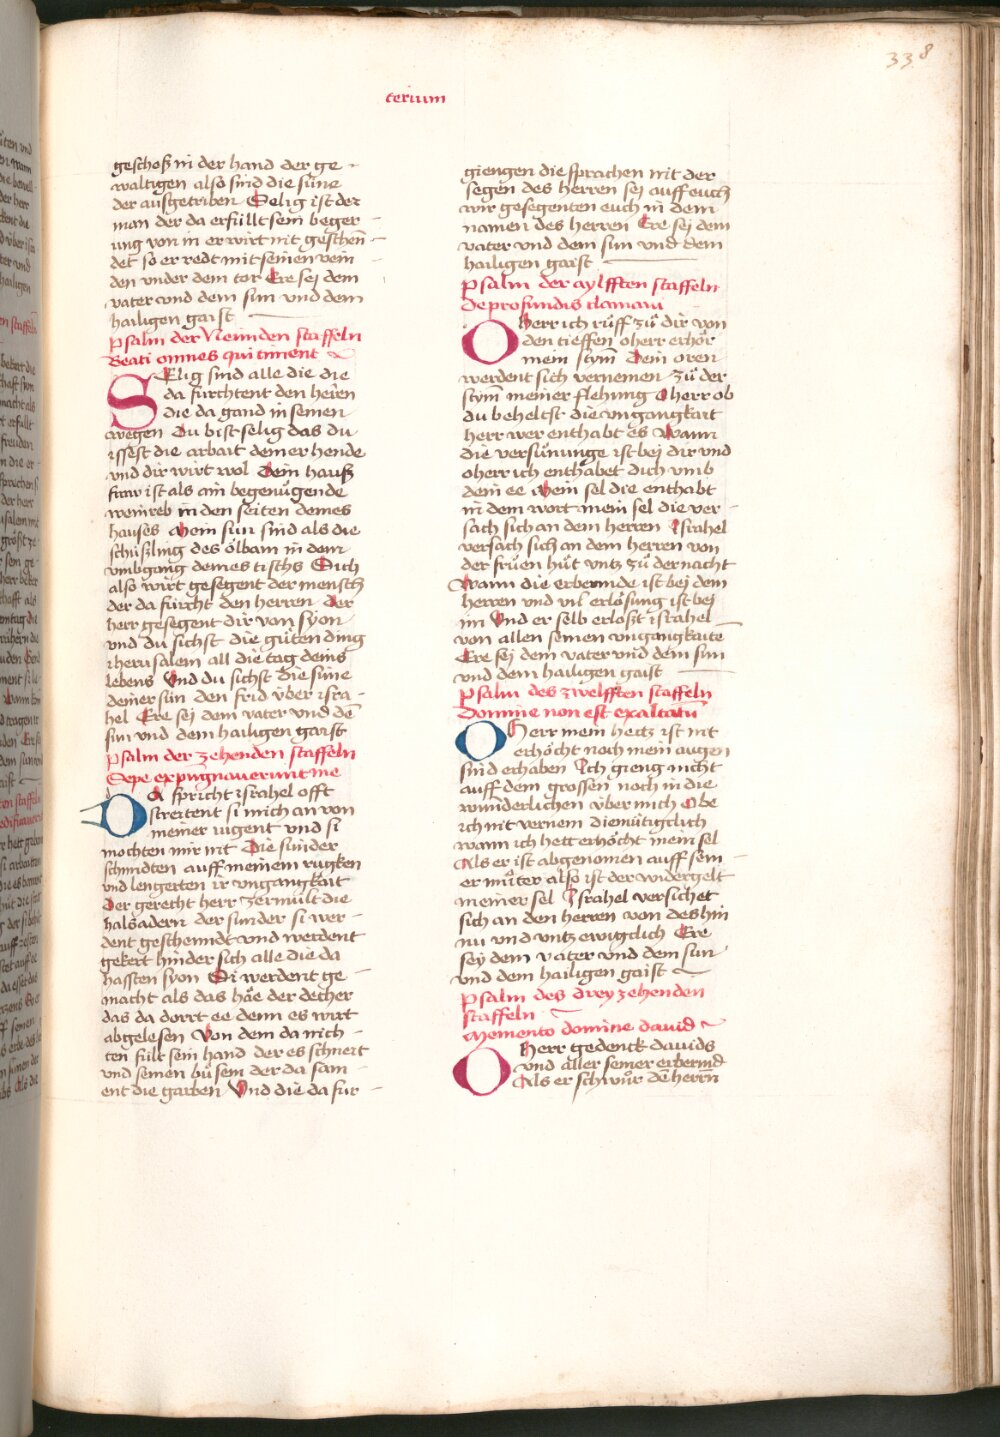 338
terium
geschoß in der hand der ge-
waltigen also sind die süne
der ausgetriben Selig ist der
man der da erfüllt sein beger-
ung von in er wirt nit geschen-
det so er redt mit seinen vein-
den vnder dem tor Ere sej dem
vater vnd dem sun vnd dem
hailigen gaist
Psalm der Neünden staffeln
Beati omnes qui timent
SElig sind alle die die
da fürchtent den herren
die da gand in seinen
wegen Du bist selig das du
issest die arbait deiner hende
vnd dir wirt wol Dein hauß
fraw ist als ain begenügende
weinreb in den seiten deines
hauses Dein sün sind als die
schüßling des ölbam in dem
vmbgang deines tischs Sich
also wirt gesegent der mensch
der da fürcht den herren Der
herr gesegent dir von syon
vnd du sichst die güten ding
iherusalem all die tag deins
lebens Vnd du sichst die süne
deiner sün den frid über isra-
hel Ere sej dem vater vnd dē
sun vnd dem hailigen gaist
Psalm der zehenden staffeln
Sepe expugnauerunt me
DA spricht israhel offt
streitent si mich an von
meiner iugent vnd si
mochten mir nit Die sünder
schmidten auff meinem rugken
vnd lengerten ir vngangkait
Der gerecht herr zermült die
halsadern der sunder si wer-
dent geschenndt vnd werdent
gekert hinder sich alle die da
hassten syon Si werdent ge-
macht als das häe der decher
das da dorrt ee denn es wirt
abgelesen Von dem da nich-
ten füllt sein hand der es schneit
vnd seinen büsem der da sam-
ent die garben Vnd die da für-
giengen die sprachen nit der
segen des herren sej auff euch
wir gesegenten euch in dem
namen des herren Ere sej dem
vater vnd dem sun vnd dem
hailigen gaist
Psalm der aylfften staffeln
De profundis clamaui
O herr ich rüff zů dir von
den tieffen o herr erhör
mein stym̄ Dein oren
werdent sich vernemen zů der
stym̄ meiner flehung O herr ob
du beheltst die vngangkait
herr wer enthabt es Wann
die versünunge ist bej dir vnd
o herr ich enthabet dich vmb
dein ee Mein sel die enthabt
in dem wort mein sel die ver-
sach sich an dem herren Israhel
versach sich an dem herren von
der früen hüt vntz zů der nacht
Wann die erbermde ist bej dem
herren vnd vil erlösung ist bej
im Vnd er selb erloßt israhel
von allen seinen vngangkaite
Ere sej dem vater vnd dem sun
vnd dem hailigen gaist
Psalm des zwelfften staffeln
Domine non est exaltatū
O Herr mein hertz ist nit
erhöcht noch mein augen
sind erhaben Ich gieng nicht
auff dem grossen noch in die
wunderlichen über mich Obe
ich nit vernem diemütigclich
wann ich hett erhöcht mein sel
Als er ist abgenomen auff sein-
er müter also ist der widergelt
meiner sel Israhel versichet
sich an den herren von deshin
nu vnd vntz ewigclich Ere
sey dem vater vnd dem sun
vnd dem hailigen gaist
Psalm des dreyzehenden
staffeln
Memento domine dauid
O Herr gedenck dauids
vnd aller seiner erbermd
Als er schwür dē herrn